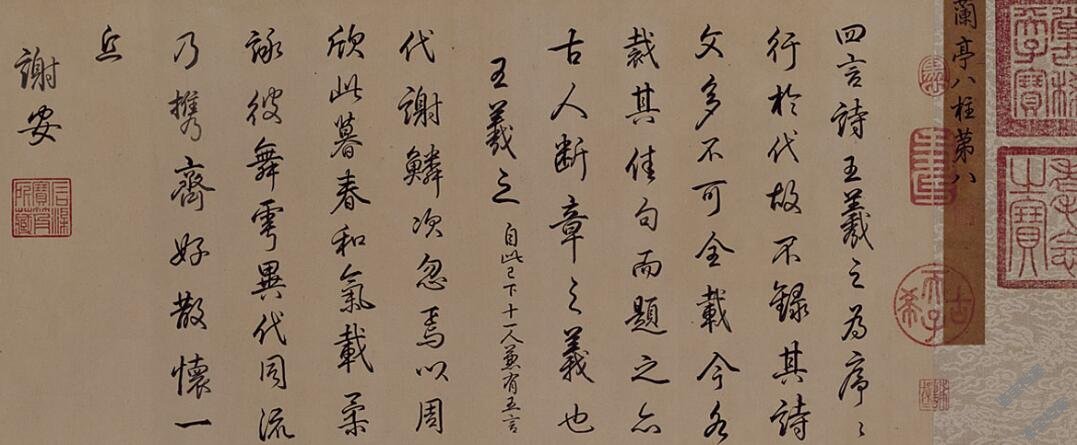 蘭亭八柱第八
四言詩王羲之為序〻
行於代故不錄其詩
文多不可全載今各
裁其佳句而題之亦
古人断章之義也
王羲之 自此已下十一人兼有五言
代謝鱗次忽焉以周
欣此暮春和氣載柔
詠彼舞雩異代同流
乃攜齊好散懷一
丘
謝安